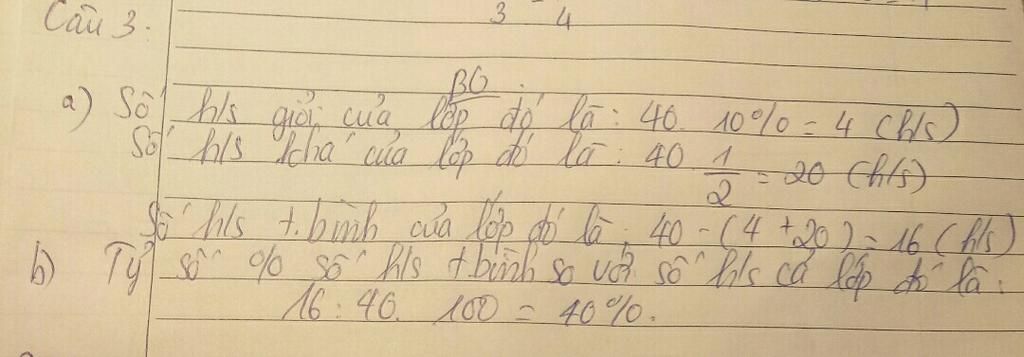 3 4
Câu 3.
BG
a) Số h/s giỏi của lớp đó là: 40. 10% = 4 (h/s)
Số h/s khá của lớp đó là: 40 1/2 = 20 (h/s)
Số h/s t.bình của lớp đó là: 40 - (4 + 20) = 16 (h/s)
b) Tỷ số % số h/s t bình so với số h/s cả lớp đó là:
16 : 40. 100 = 40%.